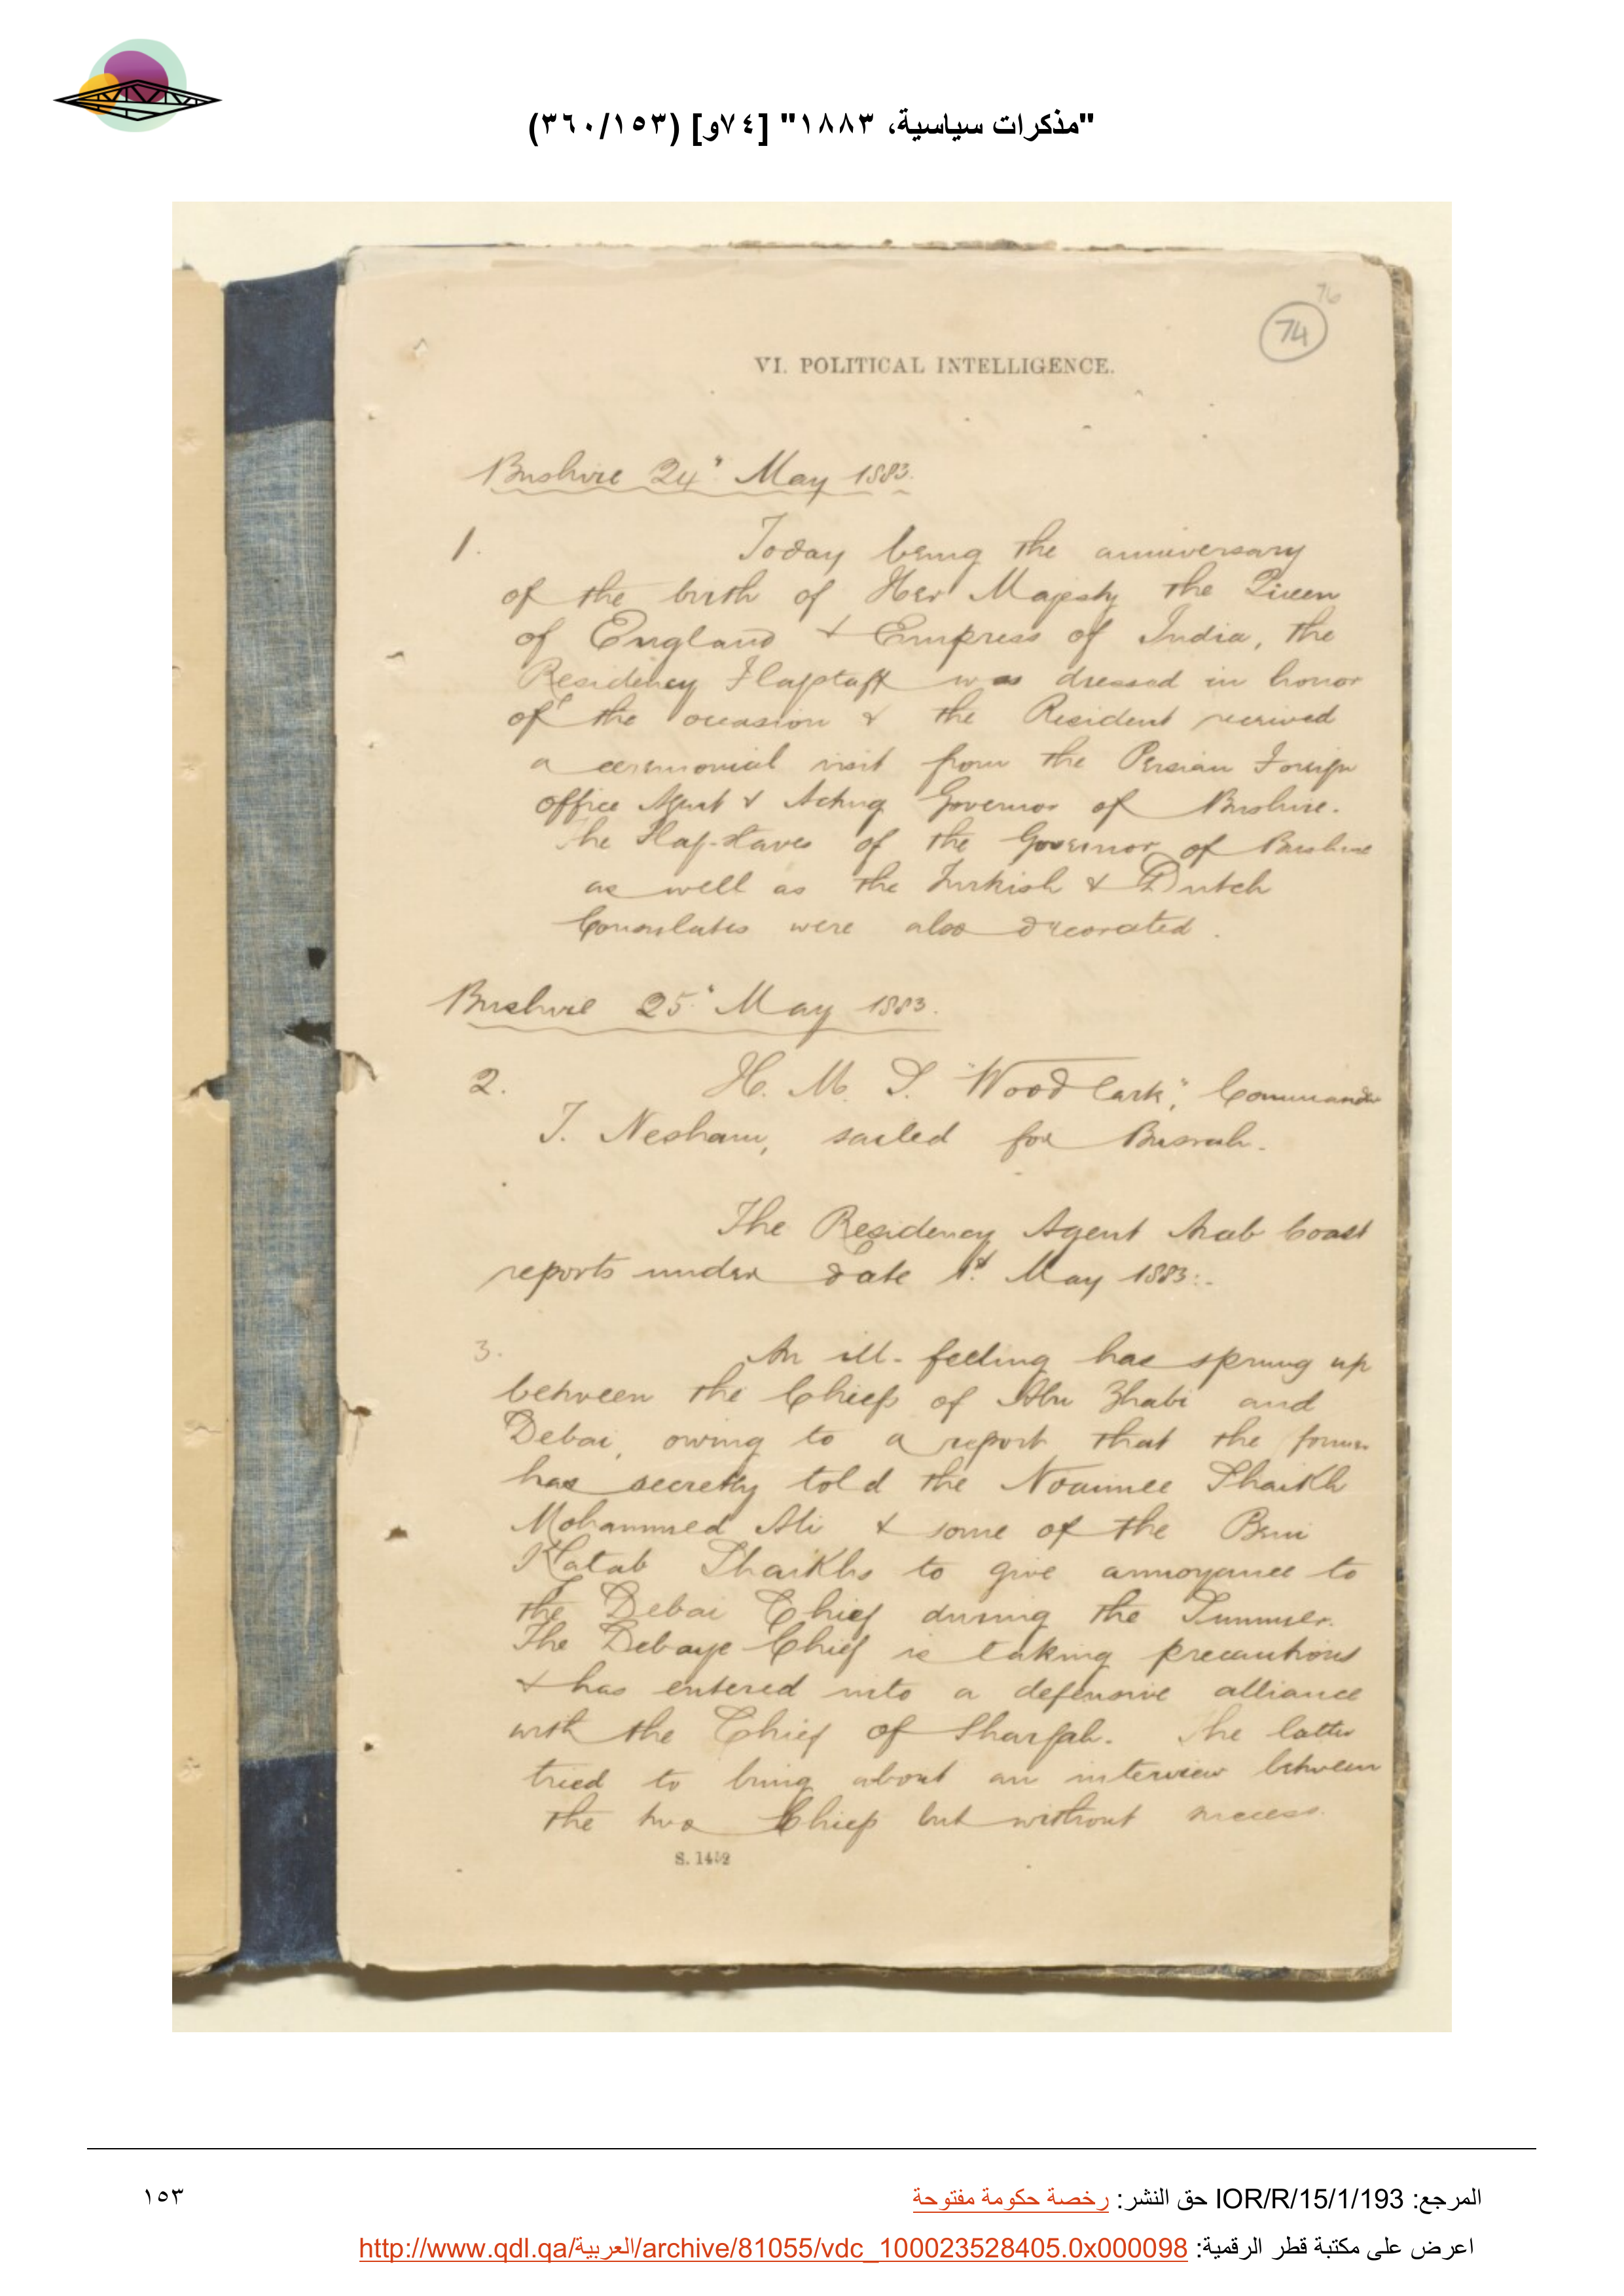 "مذكرات سياسية، ١٨٨٣" [٧٤و] (٣٦٠/١٥٣)
76
74
VI. POLITICAL INTELLIGENCE.
Bushire 24" May 1883.
1. Today being the anniversary
of the birth of Her Majesty the Queen
of England & Empress of India, the
Residency Flagstaff was dressed in honor
of the occasion & the Resident received
a ceremonial visit from the Persian Foreign
office Agent & Acting Governor of Bushire.
The Flag-staves of the Governor of Bushire
as well as the Turkish & Dutch
Consulates were also decorated.
Bushire 25" May 1883.
2. H. M. S. "Woodlark", Commander
T. Nesham, sailed for Busrah.
The Residency Agent Arab Coast
reports under date 1st May 1883:-
3. An ill-feeling has sprung up
between the Chiefs of Abu Zhabi and
Debai, owing to a report that the former
has secretly told the Noaimee Shaikh
Mohammed Ali & some of the Beni
Katab Shaikhs to give annoyance to
the Debai Chief during the Summer.
The Debaye Chief is taking precautions
& has entered into a defensive alliance
with the Chief of Shargah. The latter
tried to bring about an interview between
the two Chiefs but without success.
S. 1452
المرجع: IOR/R/15/1/193 حق النشر: رخصة حكومة مفتوحة
١٥٣
اعرض على مكتبة قطر الرقمية: http://www.qdl.qa/العربية/archive/81055/vdc_100023528405.0x000098